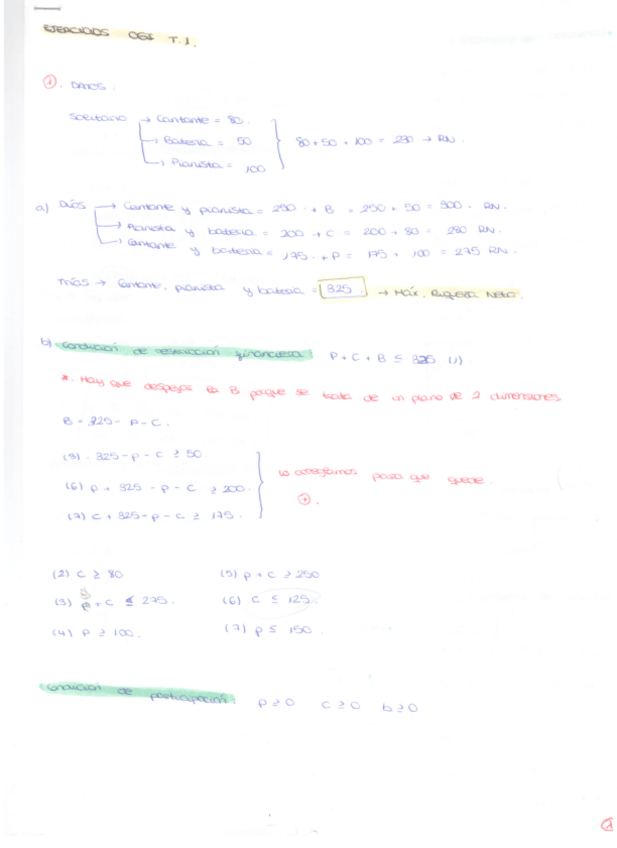 EJERCICIOS OGI T.1.
①. DATOS.
Solitario → Cantante = 80.
→ Batería = 50
→ Pianista = 100
80 + 50 + 100 = 230 → RN.
a) DÚOS → Cantante y pianista = 250 + B = 250 + 50 = 300. RN.
→ Pianista y batería = 200 + C = 200 + 80 = 280 RN.
→ Cantante y batería = 175. + P = 175 + 100 = 275 RN.
TRÍOS → Cantante, pianista y batería = 325. → Máx. Riqueza Neta.
b) Condición de restricción financiera: P + C + B ≤ 325 (1)
*. Hay que despejar la B porque se trata de un plano de 2 dimensiones
B = 325 - P - C.
(3) . 325 - P - C ≥ 50
(6) P + 325 - P - C ≥ 200.
(7) C + 325 - P - C ≥ 175.
Lo arreglamos para que quede.
(2) C ≥ 80
(5) P + C ≥ 250
(3) P + C ≤ 275.
(6) C ≤ 125.
(4) P ≥ 100.
(7) P ≤ 150.
Condición de participación: P ≥ 0 C ≥ 0 b ≥ 0